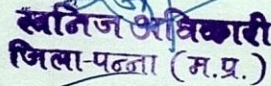 खनिज अधिकारी
जिला-पन्ना (म.प्र.)